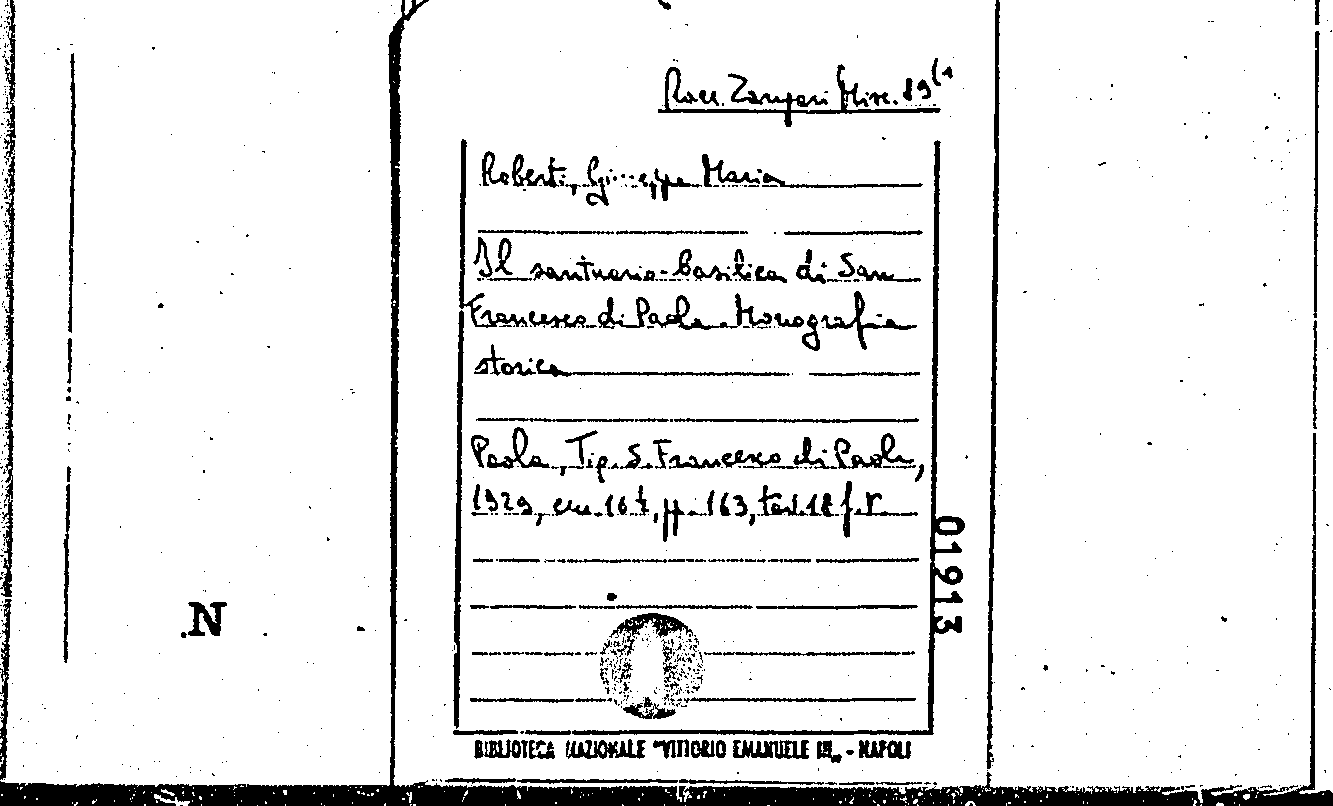 Racc. Zangari Misc. 89(1
Roberti, Giuseppe Maria
Il santuario-basilica di San
Francesco di Paola. Monografia
storica
Paola, Tip. S. Francesco di Paola,
1929, cm. 16½, pp. 163, tav. 18 f.t.
01913
.N
BIBLIOTECA NAZIONALE "VITTORIO EMANUELE III„ - NAPOLI